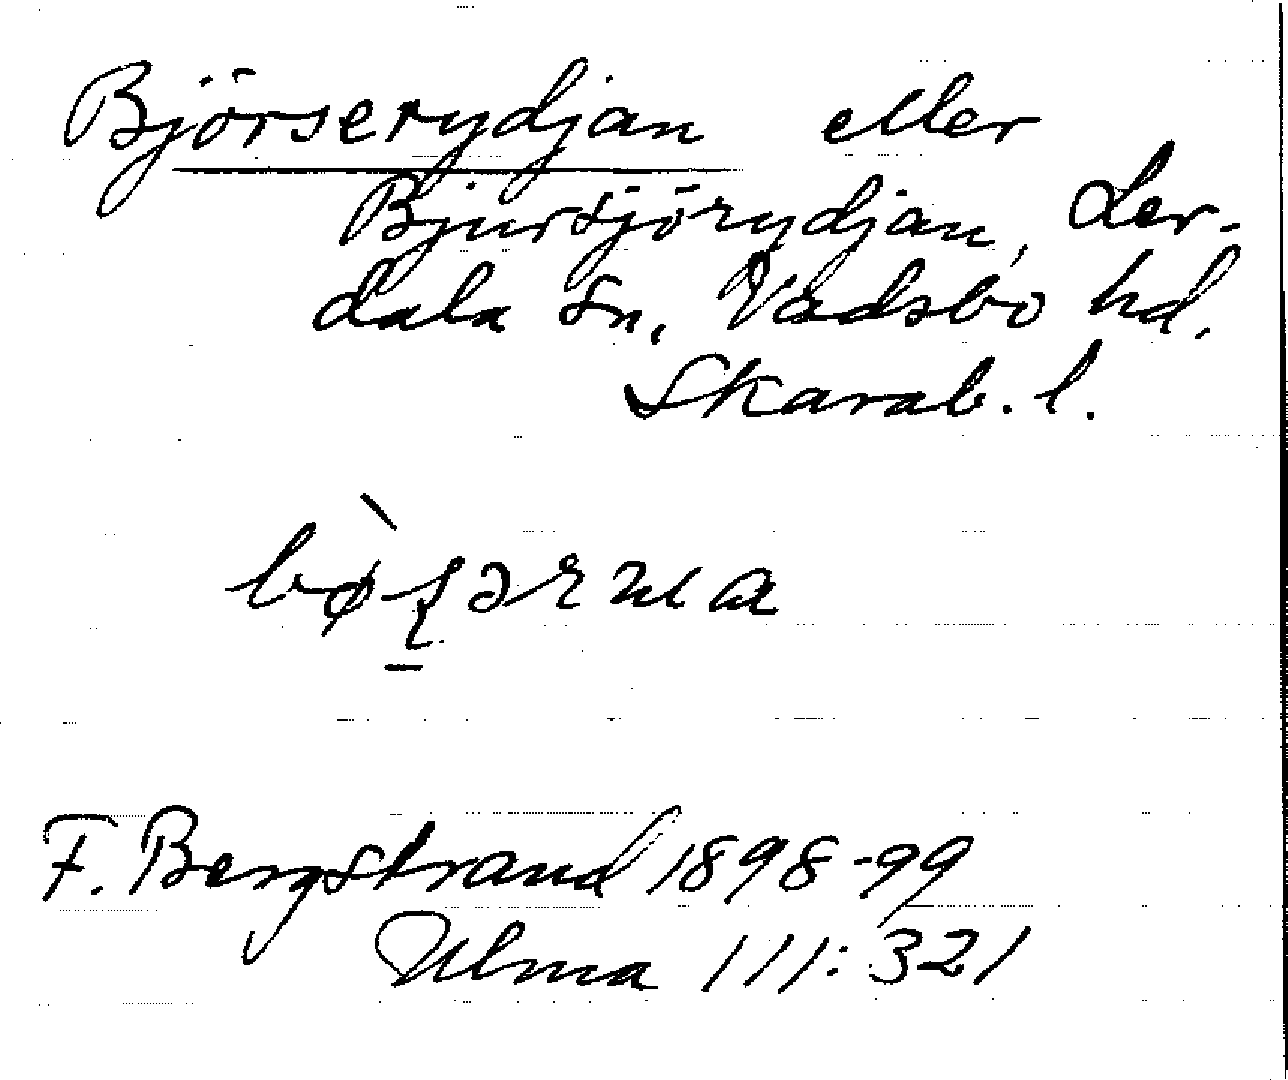 Björserydjan eller
Bjursjörydjan, Ler-
dala sn, Vadsbo hd.
Skarab. l.
F. Bergstrand 1898-99
Ulma 111:321